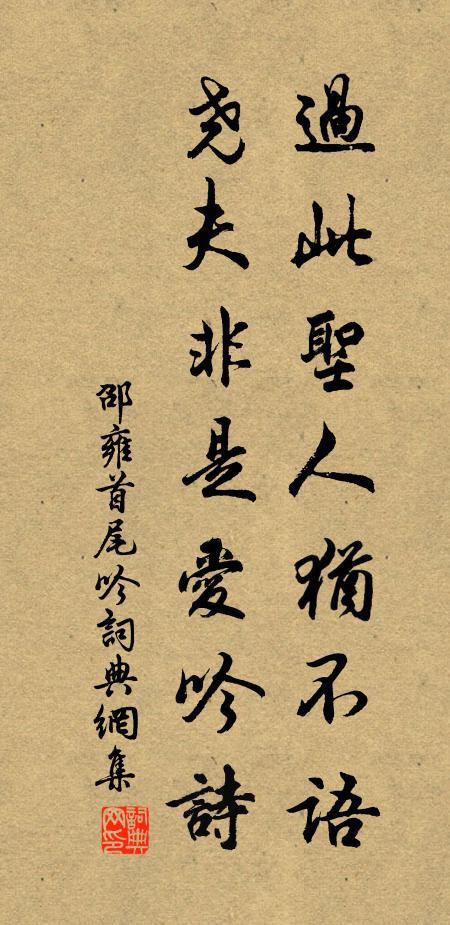 過此聖人猶不語
尭夫非是愛吟詩
邵雍首尾吟詞典網集
詞典網印